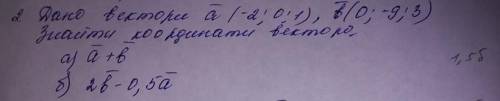 2. Дано вектори a̅ (-2; 0; 1), b̅ (0; -9; 3)
Знайти координати вектора
а) a̅ + b̅
1,5б
б) 2b̅ - 0,5a̅